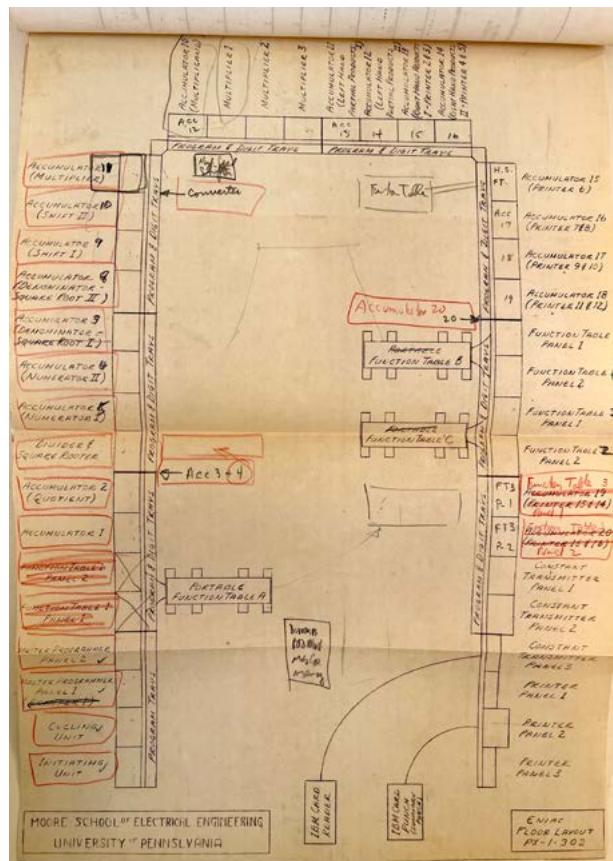 ACCUMULATOR 10
(MULTIPLICAND)
MULTIPLIER 1
MULTIPLIER 2
MULTIPLIER 3
ACCUMULATOR 11
(LEFT HAND
PARTIAL PRODUCTS I)
ACCUMULATOR 12
(LEFT HAND
PARTIAL PRODUCTS
ACCUMULATOR 13
(RIGHT HAND PRODUCTS
I-PRINTER 2 & 3)
ACCUMULATOR 14
(RIGHT HAND PRODUCTS
II-PRINTER 4 & 5)
ACC
12
ACC
13
14
15
16
PROGRAM & DIGIT TRAYS
PROGRAM & DIGIT TRAYS
ACCUMULATOR 11
(MULTIPLIER)
ACCUMULATOR 10
(SHIFT II)
ACCUMULATOR 9
(SHIFT I)
ACCUMULATOR 8
(DENOMINATOR-
SQUARE ROOT II)
ACCUMULATOR 3
(DENOMINATOR-
SQUARE ROOT I)
ACCUMULATOR 4
(NUMERATOR II)
ACCUMULATOR 5
(NUMERATOR I)
DIVIDER &
SQUARE ROOTER
ACCUMULATOR 2
(QUOTIENT)
ACCUMULATOR 1
FUNCTION TABLE 1
PANEL 2
FUNCTION TABLE 1
PANEL 1
MASTER PROGRAMMER
PANEL 2
MASTER PROGRAMMER
PANEL 1
CYCLING
UNIT
INITIATING
UNIT
PROGRAM & DIGIT TRAYS
PROGRAM & DIGIT TRAYS
PROGRAM & DIGIT TRAYS
PROGRAM TRAYS
Converter
Function Table
Accumulator 20
20
PORTABLE
FUNCTION TABLE B
PORTABLE
FUNCTION TABLE C
Acc 3 + 4
PORTABLE
FUNCTION TABLE A
PROGRAM & DIGIT TRAYS
PROGRAM & DIGIT TRAYS
PROGRAM & DIGIT TRAYS
H.S.
FT.
ACC
17
18
19
FT3
P. 1
FT3
P. 2
ACCUMULATOR 15
(PRINTER 6)
ACCUMULATOR 16
(PRINTER 7&8)
ACCUMULATOR 17
(PRINTER 9&10)
ACCUMULATOR 18
(PRINTER 11&12)
FUNCTION TABLE
PANEL 1
FUNCTION TABLE
PANEL 2
FUNCTION TABLE
PANEL 1
FUNCTION TABLE 2
PANEL 2
Function Table 3
ACCUMULATOR 19
(PRINTER 13&14)
Panel 1
Function Table 3
ACCUMULATOR 20
(PRINTER 15&16)
Panel 2
CONSTANT
TRANSMITTER
PANEL 1
CONSTANT
TRANSMITTER
PANEL 2
CONSTANT
TRANSMITTER
PANEL 3
PRINTER
PANEL 1
PRINTER
PANEL 2
PRINTER
PANEL 3
IBM CARD
READER
IBM CARD
PUNCH
MOORE SCHOOL OF ELECTRICAL ENGINEERING
UNIVERSITY OF PENNSYLVANIA
ENIAC
FLOOR LAYOUT
PX-1-302